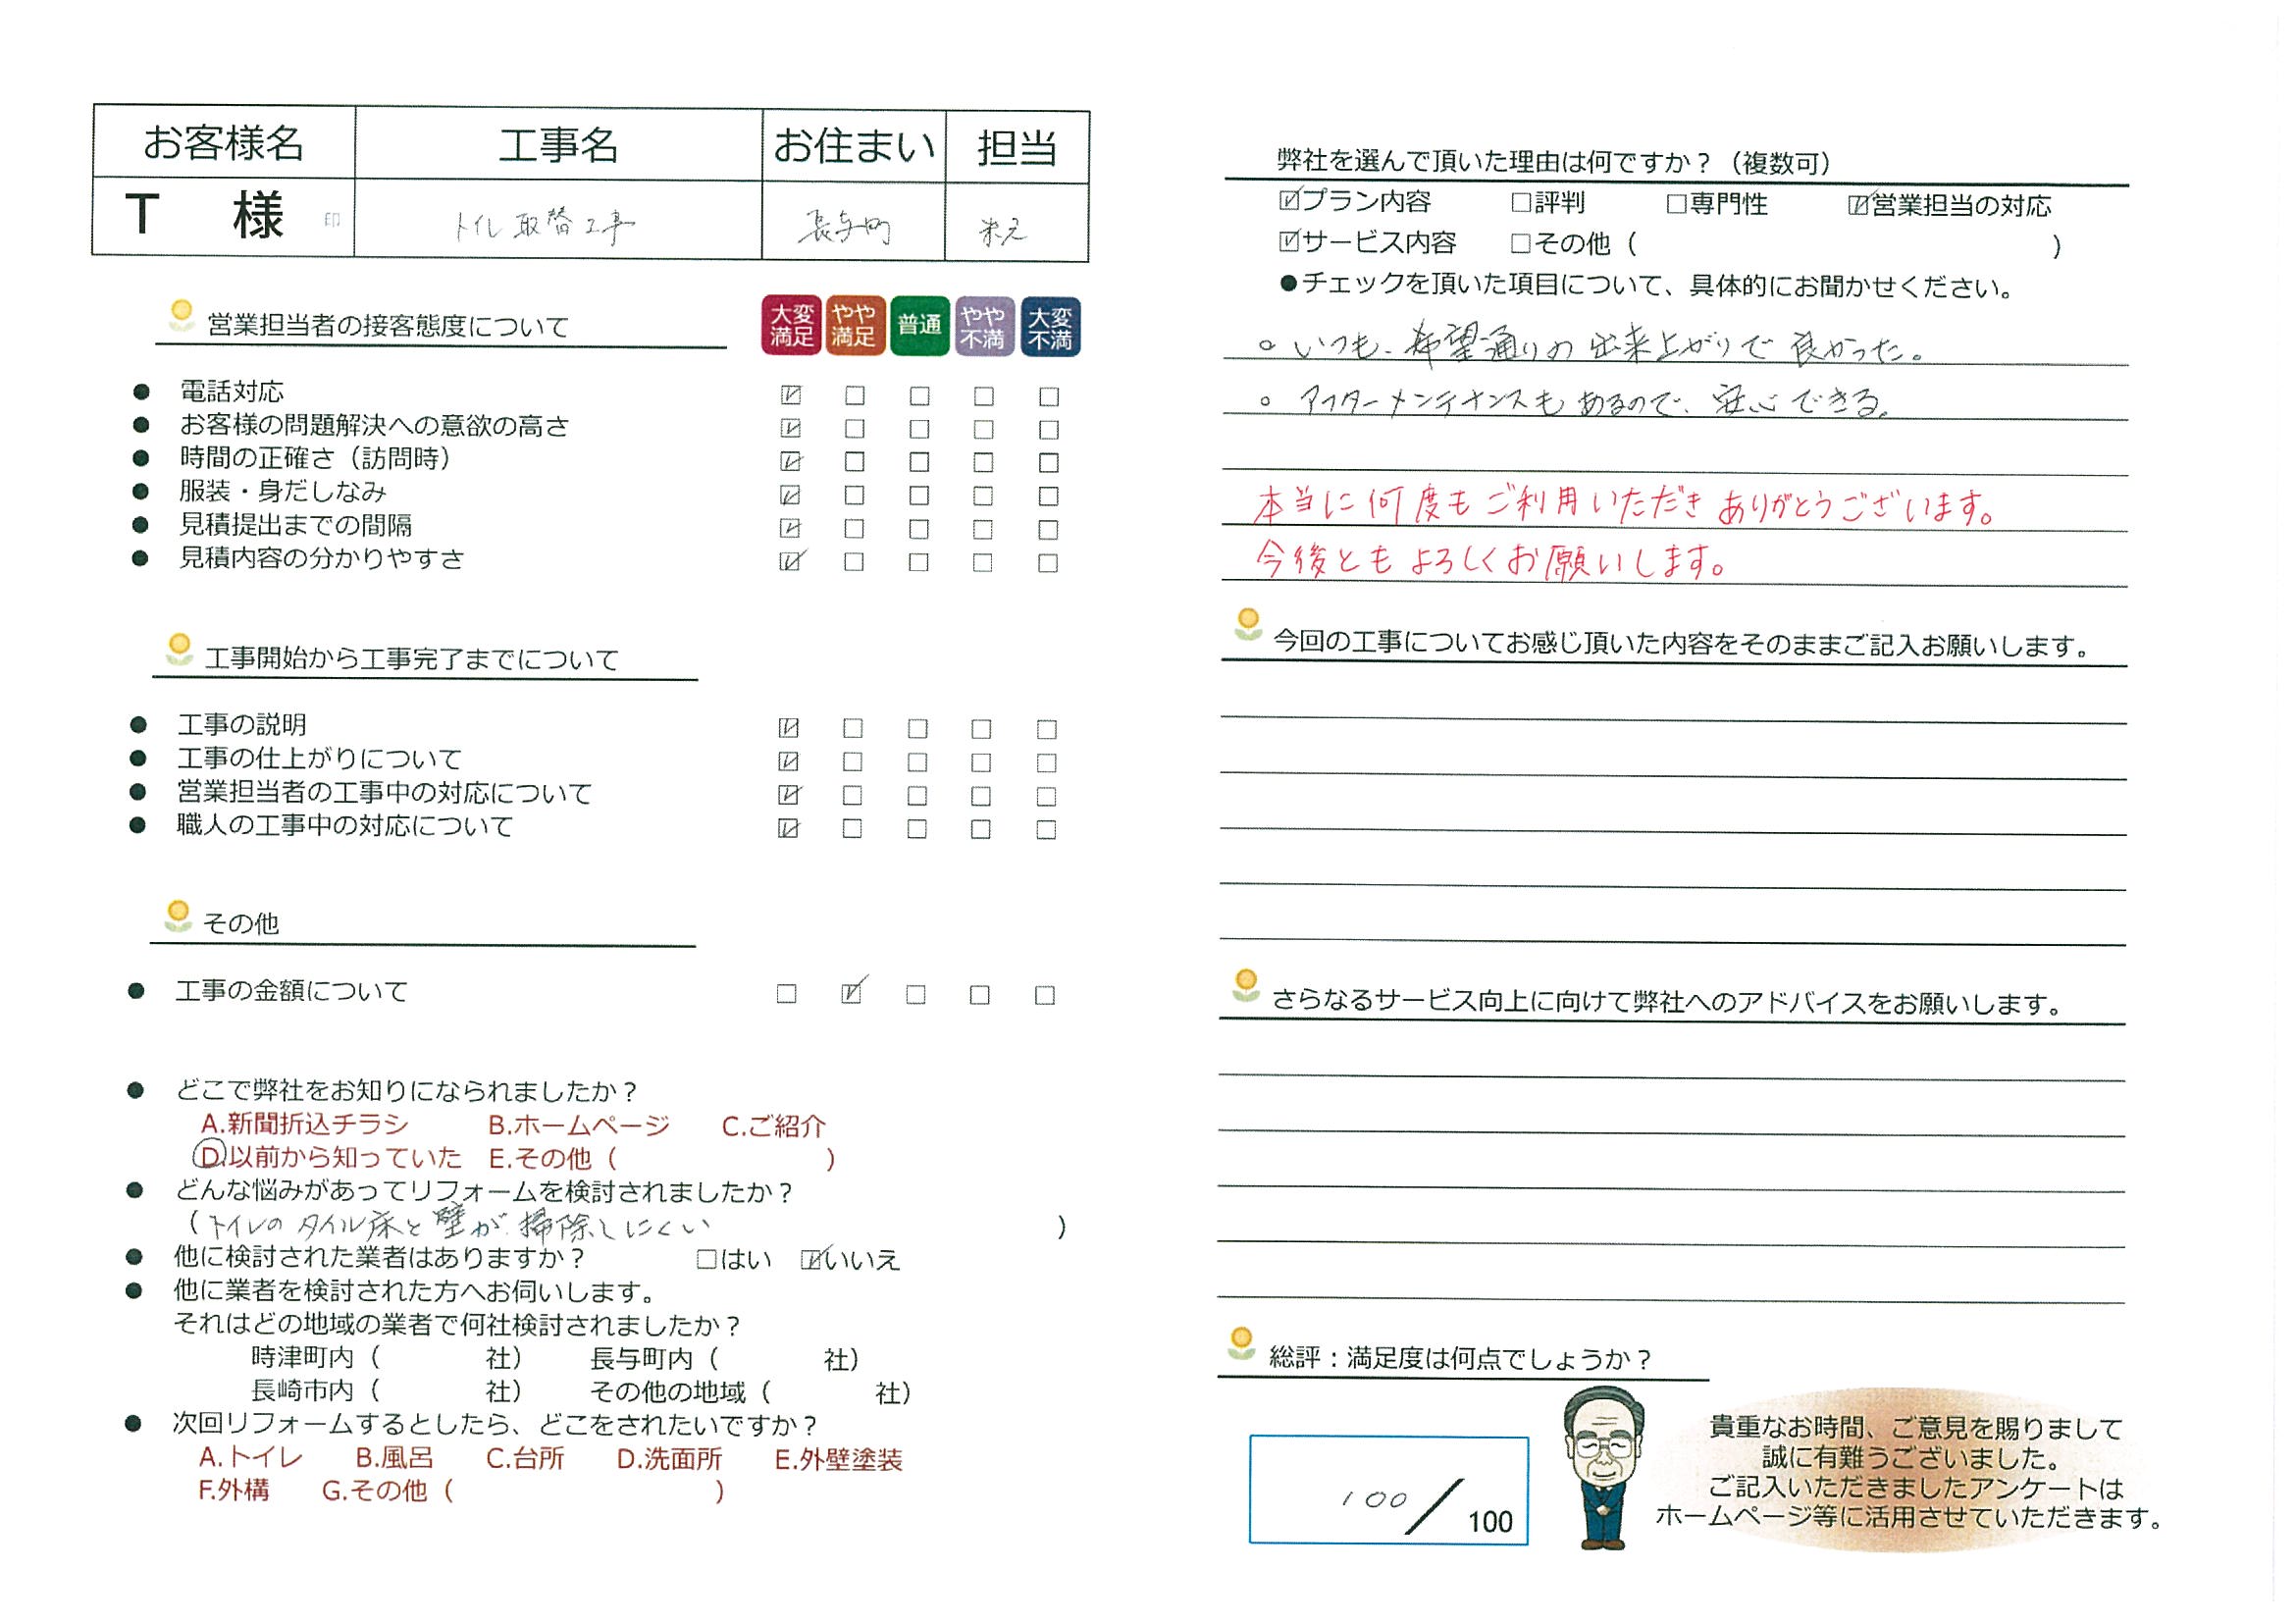 お客様名 工事名 お住まい 担当
T 様 印 トイレ取替工事 長与町
営業担当者の接客態度について 大変満足 やや満足 普通 やや不満 大変不満
● 電話対応 ☑ □ □ □ □
● お客様の問題解決への意欲の高さ ☑ □ □ □ □
● 時間の正確さ（訪問時） ☑ □ □ □ □
● 服装・身だしなみ ☑ □ □ □ □
● 見積提出までの間隔 ☑ □ □ □ □
● 見積内容の分かりやすさ ☑ □ □ □ □
工事開始から工事完了までについて
● 工事の説明 ☑ □ □ □ □
● 工事の仕上がりについて ☑ □ □ □ □
● 営業担当者の工事中の対応について ☑ □ □ □ □
● 職人の工事中の対応について ☑ □ □ □ □
その他
● 工事の金額について □ ☑ □ □ □
● どこで弊社をお知りになられましたか？
A.新聞折込チラシ B.ホームページ C.ご紹介
D.以前から知っていた E.その他（ ）
● どんな悩みがあってリフォームを検討されましたか？
（トイレのタイル床と壁が掃除しにくい ）
● 他に検討された業者はありますか？ □はい ☑いいえ
● 他に業者を検討された方へお伺いします。
それはどの地域の業者で何社検討されましたか？
時津町内（ 社） 長与町内（ 社）
長崎市内（ 社） その他の地域（ 社）
● 次回リフォームするとしたら、どこをされたいですか？
A.トイレ B.風呂 C.台所 D.洗面所 E.外壁塗装
F.外構 G.その他（ ）
弊社を選んで頂いた理由は何ですか？（複数可）
☑プラン内容 □評判 □専門性 ☑営業担当の対応
☑サービス内容 □その他（ ）
●チェックを頂いた項目について、具体的にお聞かせください。
○ いつも、希望通りの出来上がりで良かった。
○ アフターメンテナンスもあるので、安心できる。
本当に何度もご利用いただきありがとうございます。
今後ともよろしくお願いします。
今回の工事についてお感じ頂いた内容をそのままご記入お願いします。
さらなるサービス向上に向けて弊社へのアドバイスをお願いします。
総評：満足度は何点でしょうか？
100／100
貴重なお時間、ご意見を賜りまして
誠に有難うございました。
ご記入いただきましたアンケートは
ホームページ等に活用させていただきます。